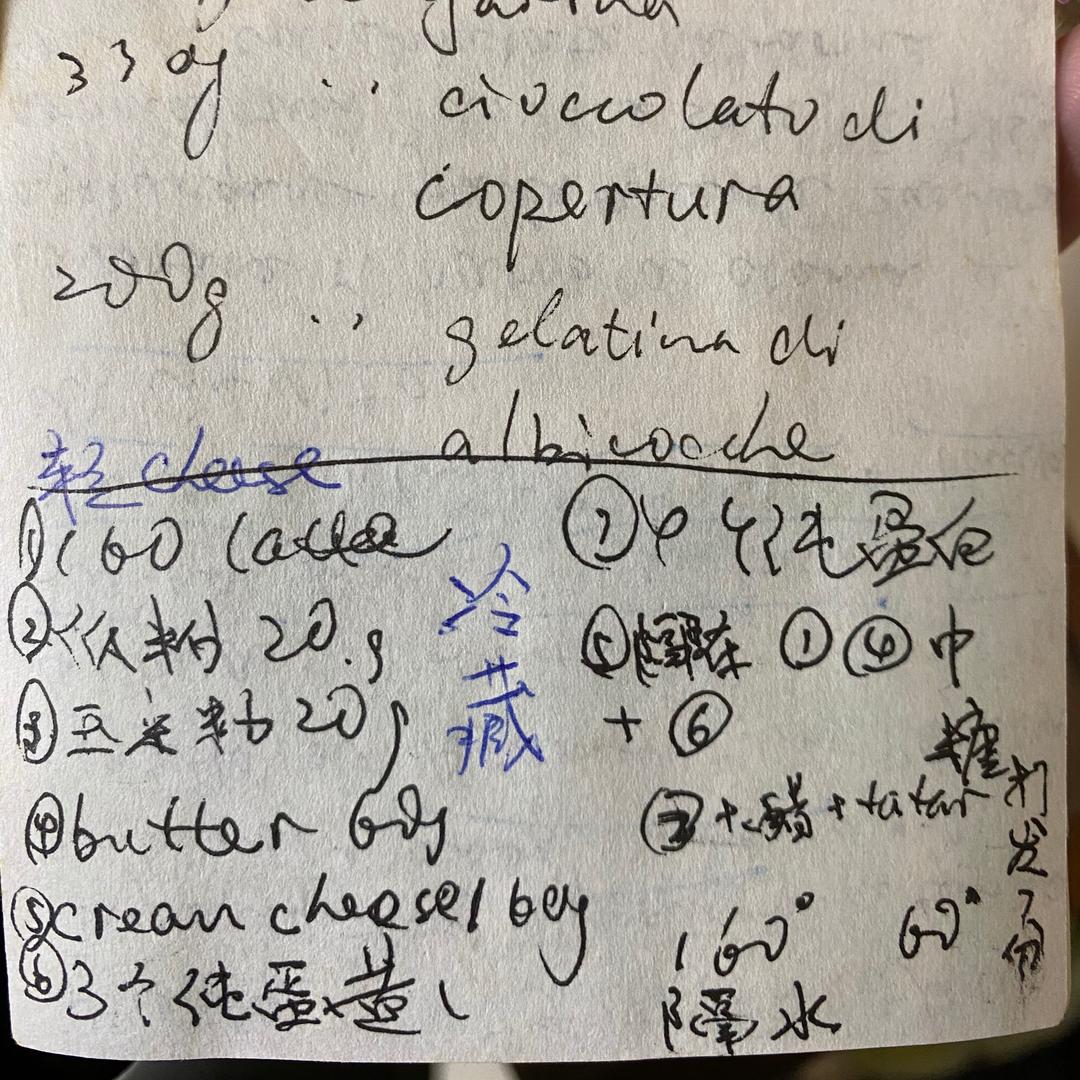 330g " cioccolato di
copertura
200g " gelatina di
albicocche
轻 cheese
① 160 latte
② 低粉 20g
③ 玉米粉 20g
④ butter 60g
⑤ cream cheese 160g
⑥ 3个纯蛋黄
冷藏
⑦ 4个纯蛋白
⑤ 隔 ①④中
+ ⑥
⑦ + 醋 + tatar
糖
打发7分
160° 60°
隔水